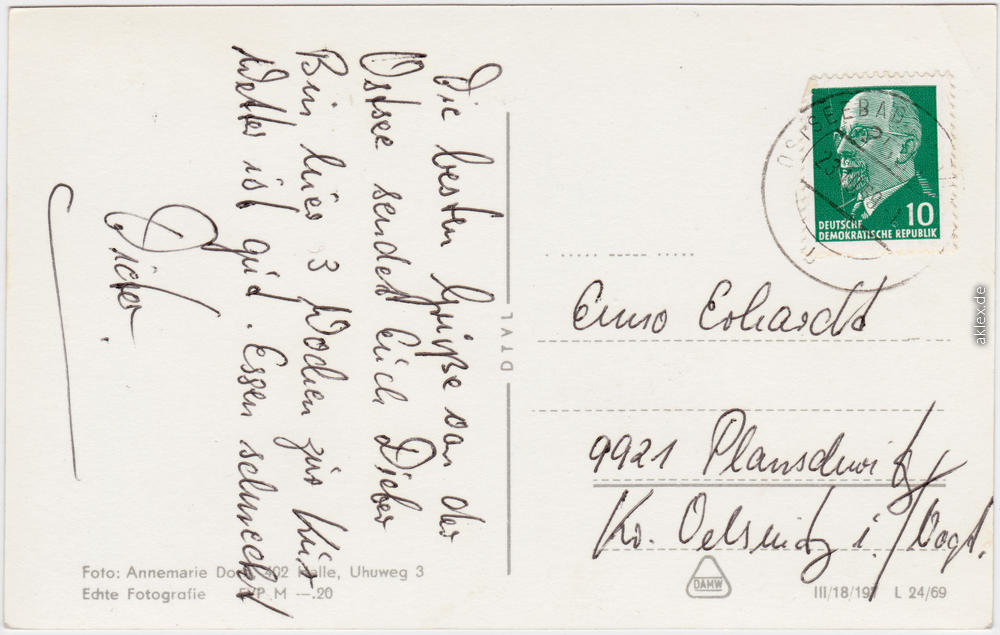 Die besten Grüße von der
Ostsee sendet Euch Dieter
Bin hier 3 Wochen zur Kur
Wetter ist gut. Essen schmeckt
Dieter
Foto: Annemarie 402 Halle, Uhuweg 3
Echte Fotografie EVP M —.20
DTVL
OSTSEEBAD
DEUTSCHE
DEMOKRATISCHE REPUBLIK 10
Erhardt
9921 Planschwitz
Kr. Oelsnitz i./Vogt.
DAMW
III/18/197 L 24/69
aklex.de